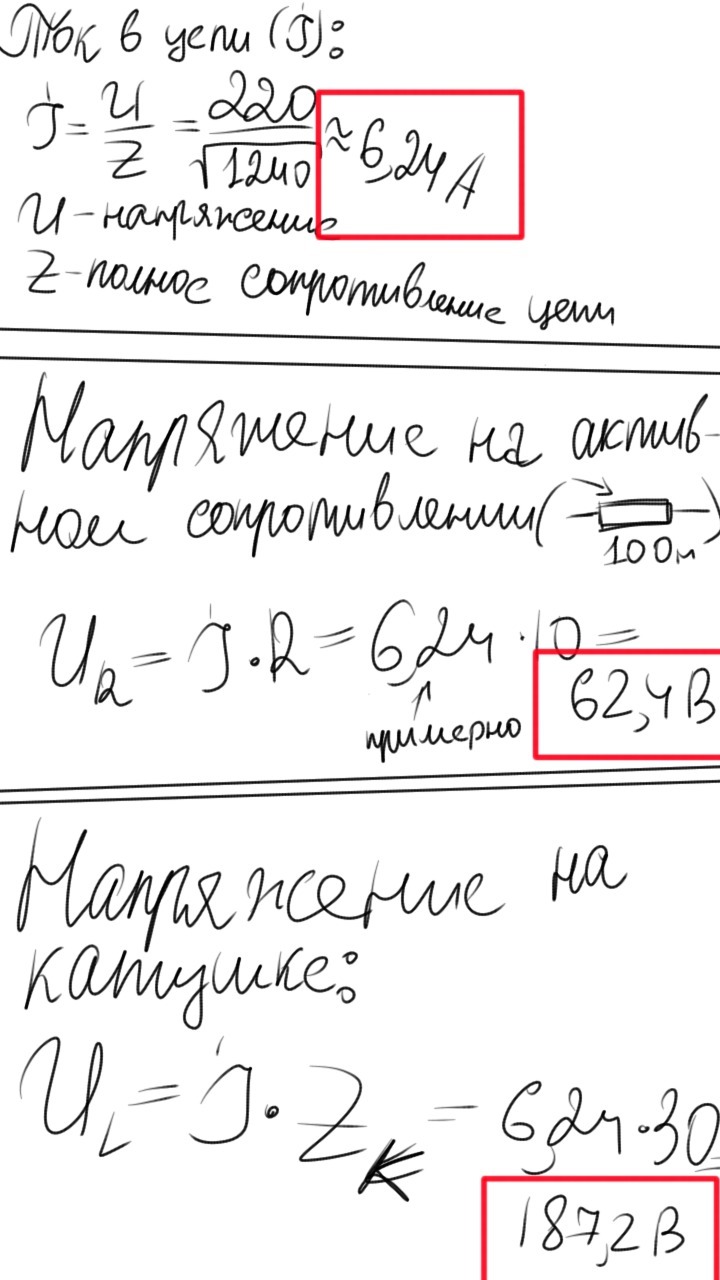 Ток в цепи (J):
J = U/Z = 220/√1240 ≈ 6,24 А
U - напряжение
Z - полное сопротивление цепи
Напряжение на актив-
ном сопротивлении (
10 Ом
)
U_R = J · R = 6,24 · 10 =
62,4 В
примерно
Напряжение на
катушке:
U_L = J · Z_K = 6,24 · 30
187,2 В